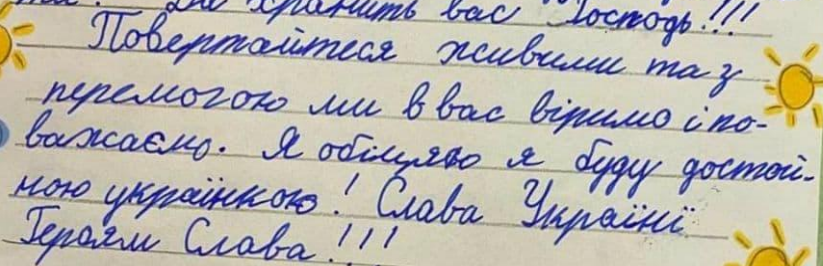 хранить вас Господь!!!
Повертайтеся живими та з
перемогою ми в вас віримо і по-
важаємо. Я обіцяю я буду достой-
ною українкою! Слава Україні
Героям Слава!!!